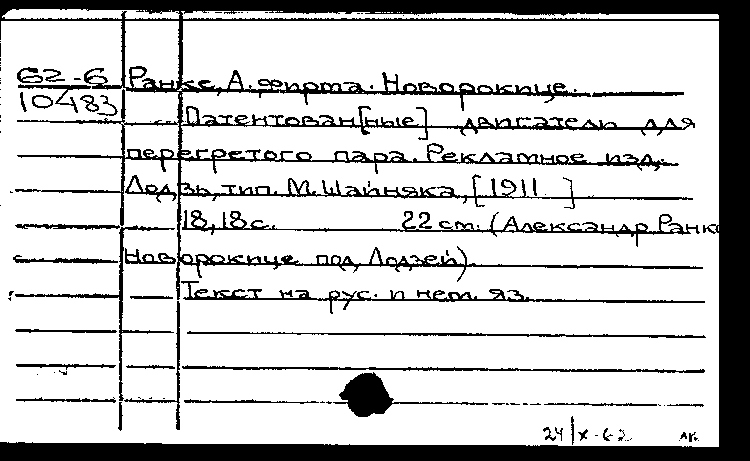 62-6 Ранке, А. фирма. Новорокице.
10483
Патентован[ные] двигатели для
перегретого пара. Рекламное изд.
Лодзь, тип. М. Шайняка, [1911 ]
18, 18 с. 22 см. (Александр Ранке
Новорокице под Лодзей).
Текст на рус. и нем. яз.
24/X-62 АК